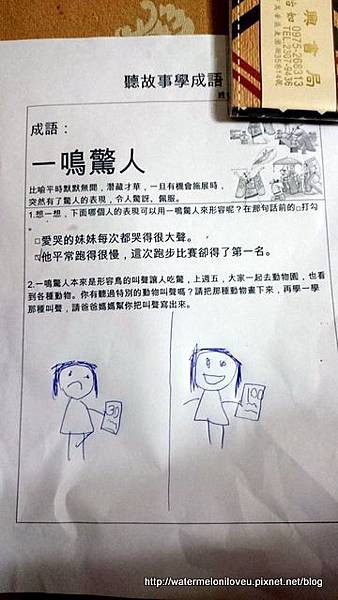 興書局
0975-268313
TEL:2307-9436
聽故事學成語
成語：
一鳴驚人
比喻平時默默無聞，潛藏才華，一旦有機會施展時，
突然有了驚人的表現，令人驚訝、佩服。
1.想一想，下面哪個人的表現可以用一鳴驚人來形容呢？在那句話前的□打勾。
□愛哭的妹妹每次都哭得很大聲。
☑他平常跑得很慢，這次跑步比賽卻得了第一名。
2.一鳴驚人本來是形容鳥的叫聲讓人吃驚，上週五，大家一起去動物園，也看
到各種動物。你有聽過特別的動物叫聲嗎？請把那種動物畫下來，再學一學
那種叫聲，請爸爸媽媽幫你把叫聲寫出來。
30
100
http://watermeloniloveu.pixnet.net/blog